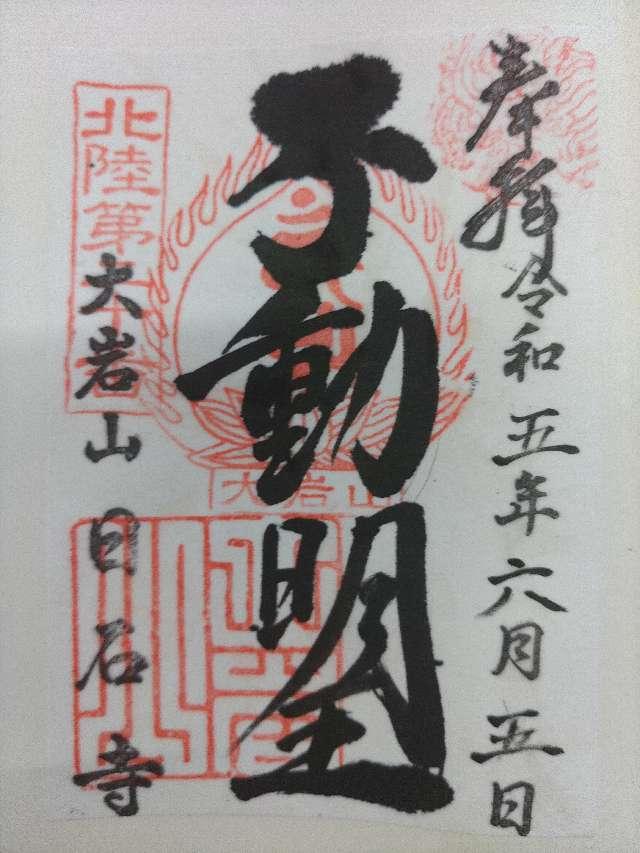 奉拝
令和五年六月五日
不動明王
北陸第
大岩山
大岩山
日石寺